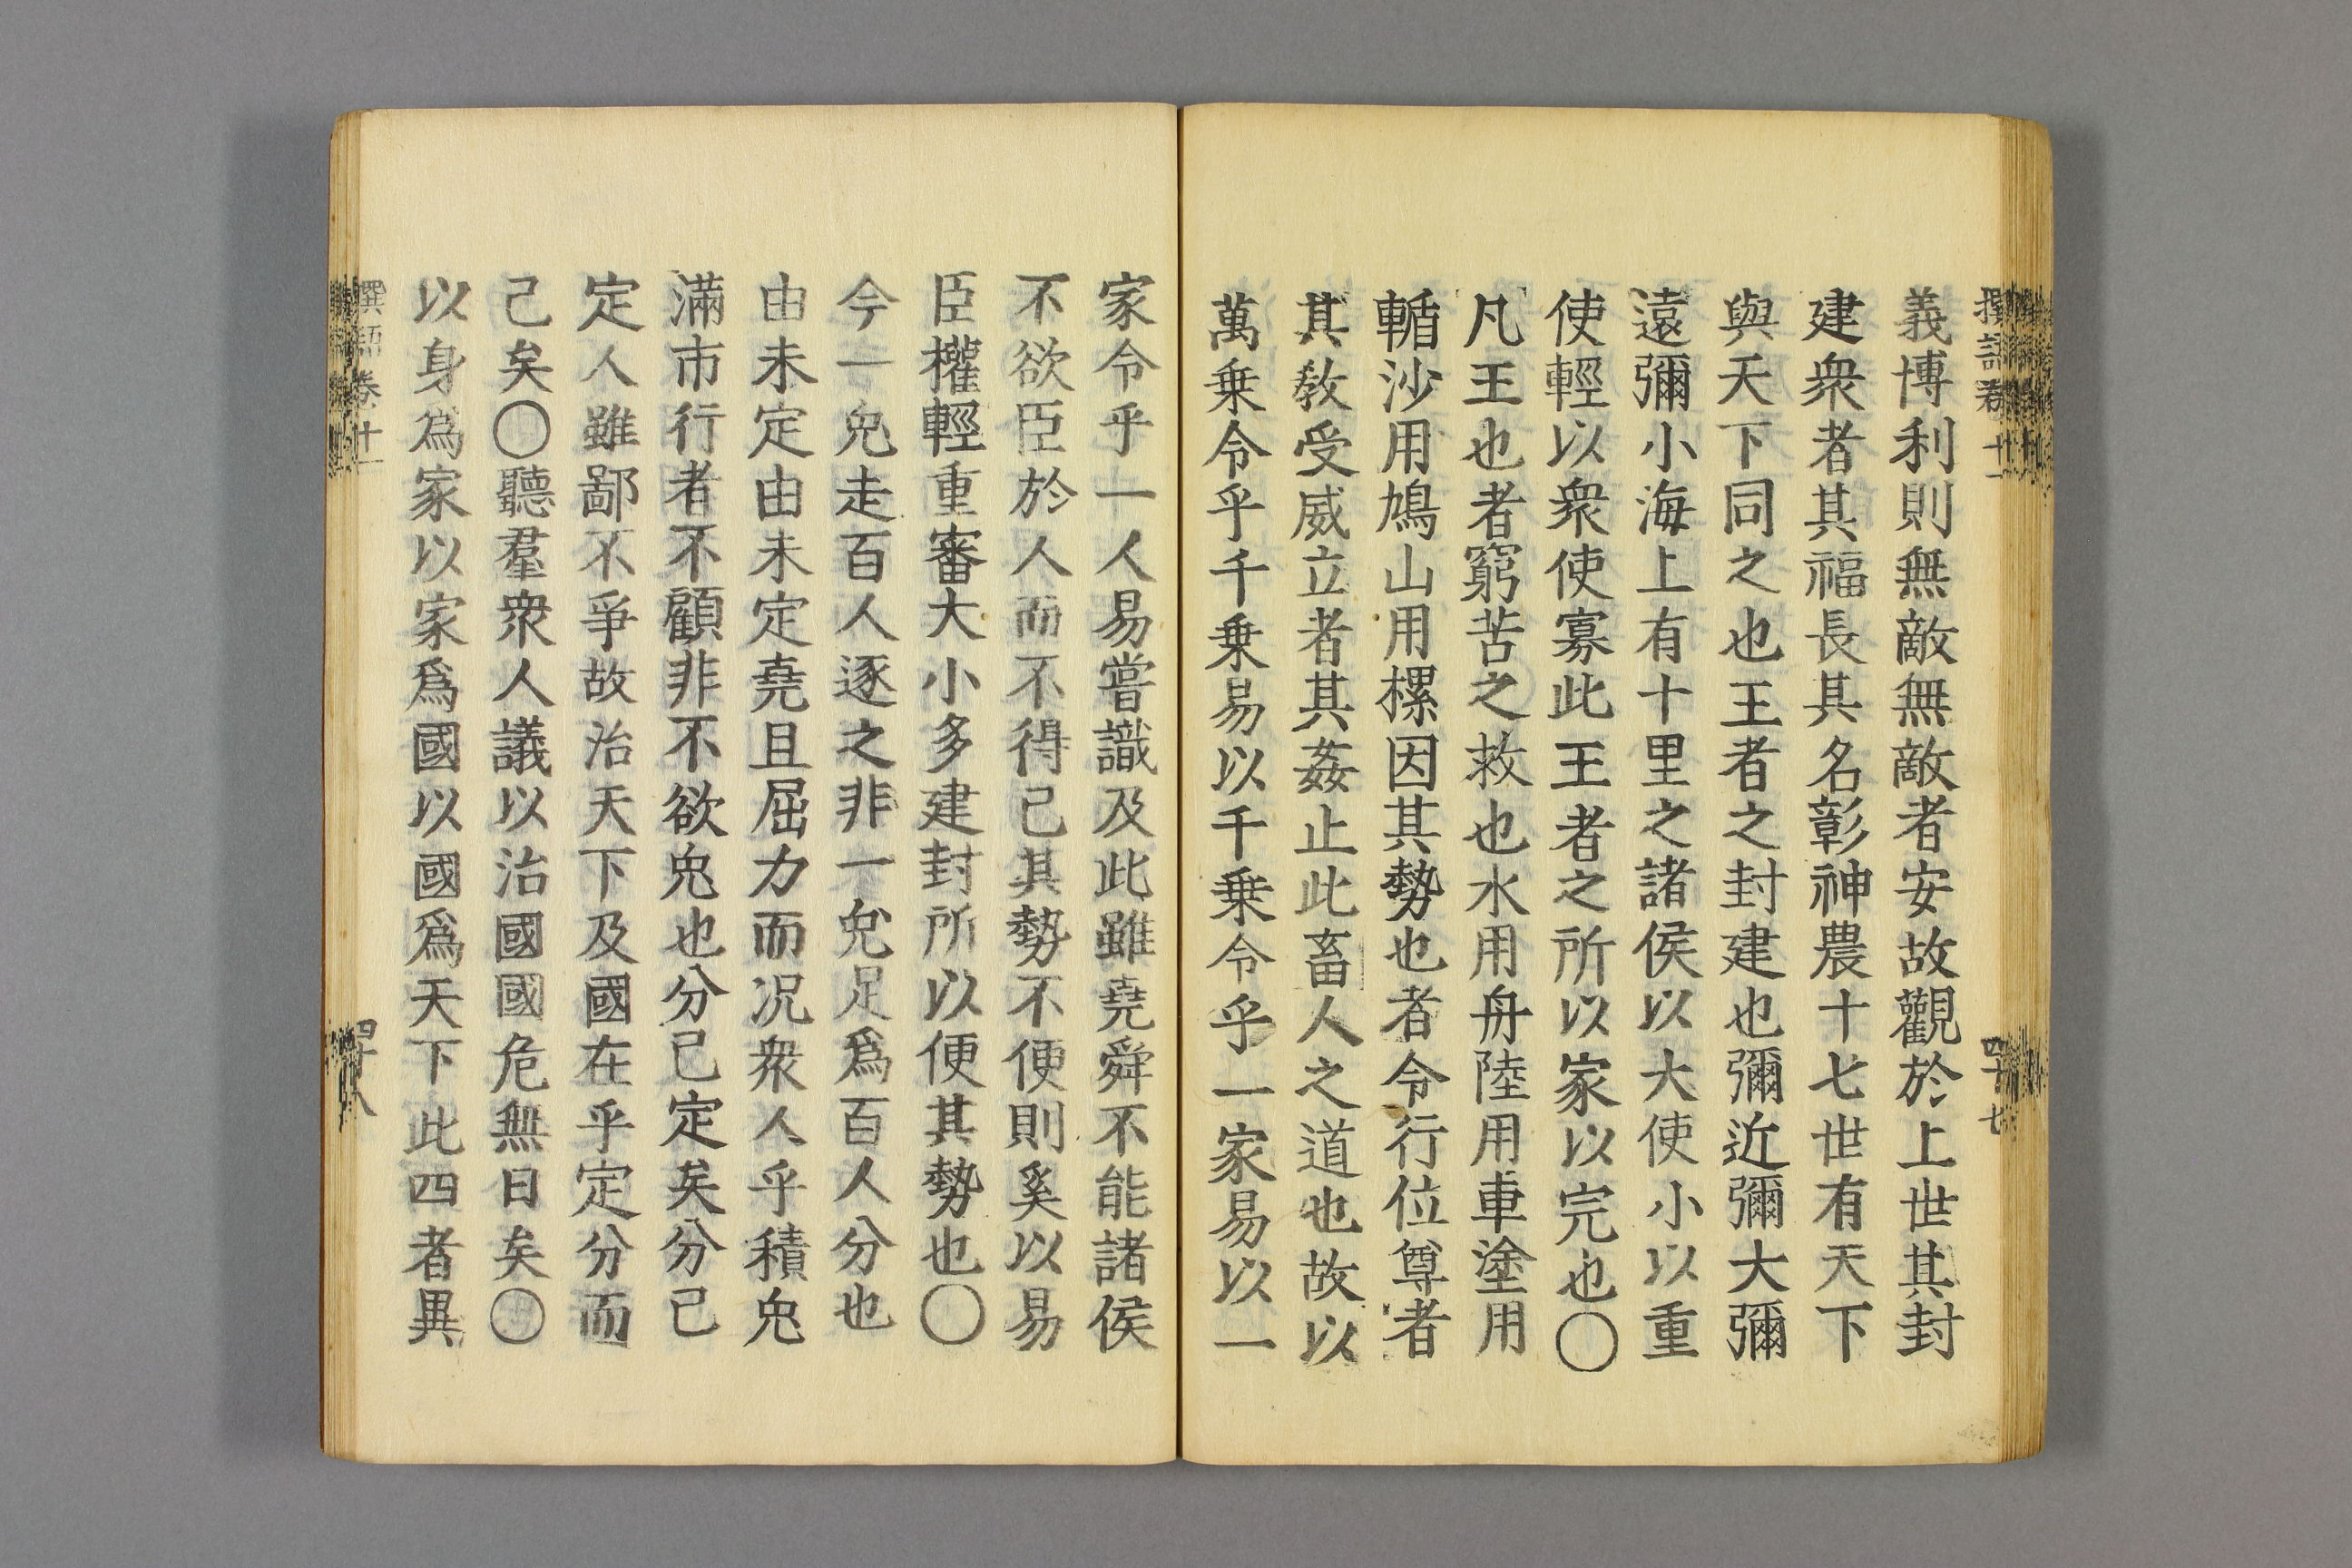 義博利則無敵無敵者安故觀於上世其封
建衆者其福長其名彰神農十七世有天下
與天下同之也王者之封建也彌近彌大彌
遠彌小海上有十里之諸侯以大使小以重
使輕以衆使寡此王者之所以家以完也〇
凡王也者窮苦之救也水用舟陸用車塗用
輴沙用鳩山用樏因其勢也者令行位尊者
其教受威立者其姦止此畜人之道也故以
萬乗令乎千乗易以千乗令乎一家易以一
家令乎一人易嘗識及此雖堯舜不能諸侯
不欲臣於人而不得已其勢不便則奚以易
臣權輕重審大小多建封所以便其勢也〇
今一兔走百人逐之非一兔足爲百人分也
由未定由未定堯且屈力而況衆人乎積兔
滿市行者不顧非不欲兔也分已定矣分已
定人雖鄙不爭故治天下及國在乎定分而
己矣〇聽羣衆人議以治國國危無日矣〇
以身爲家以家爲國以國爲天下此四者異
撰語卷十一
四十七
撰語卷十一
四十八